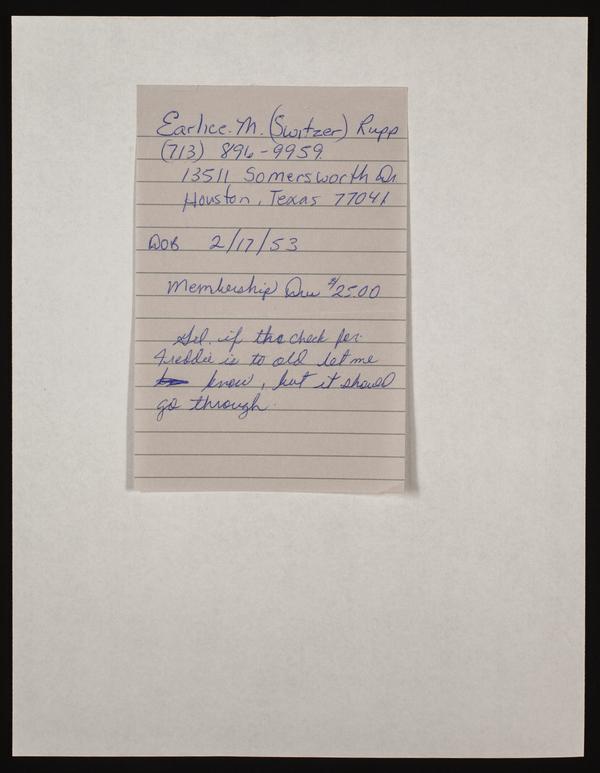 Earlice. M. (Switzer) Rupp
(713) 896-9959
13511 Somersworth Dr
Houston, Texas 77041
DOB 2/17/53
Membership Due $25.00
Sel. if the check for
Freddie is to old let me
know, but it should
go through.